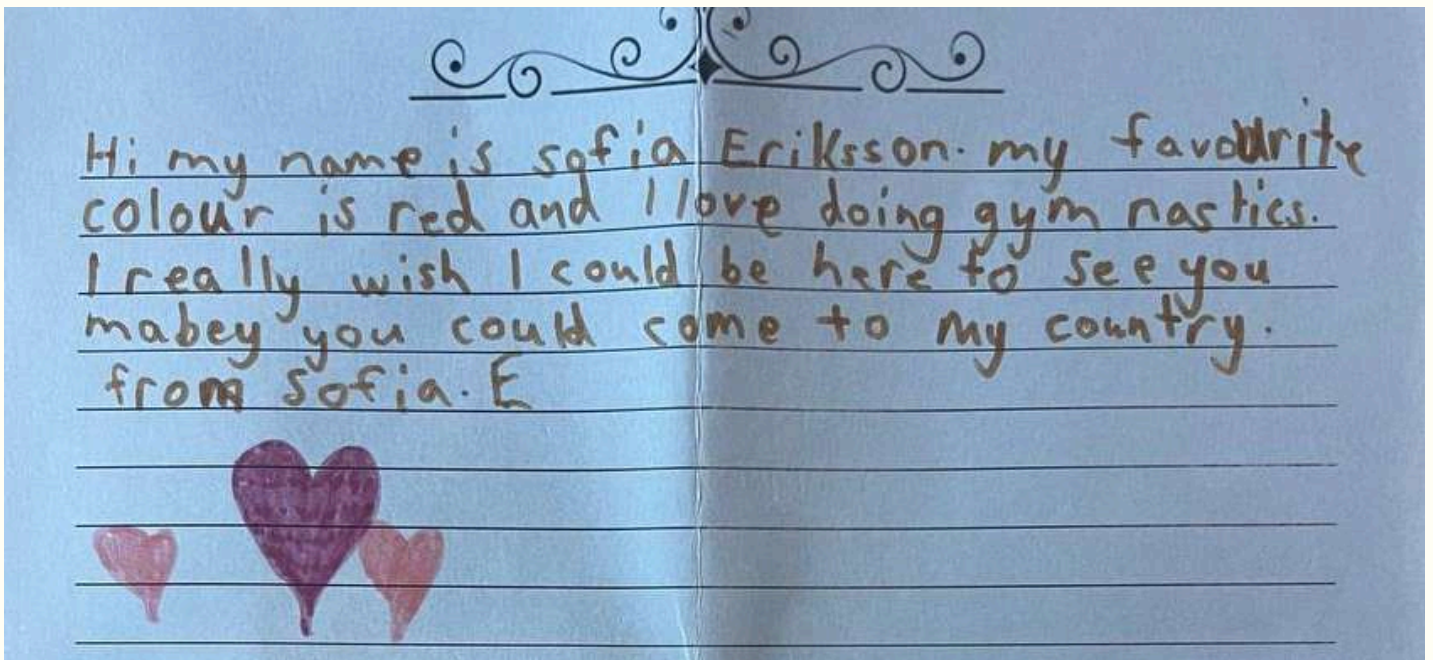 Hi my name is sofia Eriksson. my favourite
colour is red and I love doing gym nastics.
I really wish I could be here to see you
mabey you could come to my country.
from Sofia. E